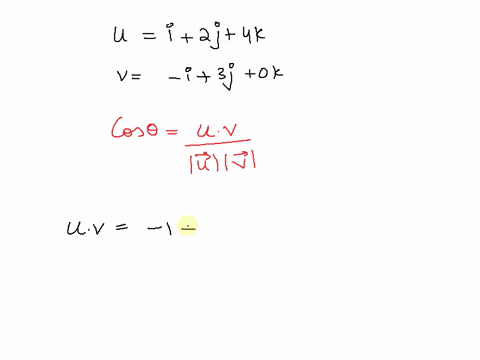 u = i + 2j + 4k
v = -i + 3j + 0k
Cosθ = u.v / |u⃗||v⃗|
u.v = -1 -